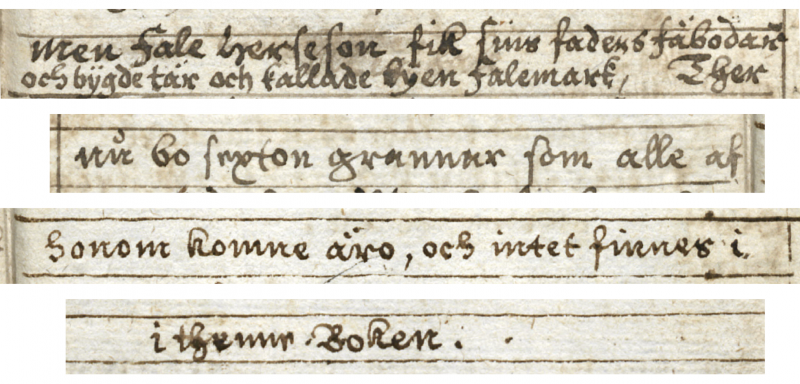 men Fale Herseson fik sins faders fäbodar
och bygde tär och kallade byen Falemark, Ther
nu bo sexton grannar som alle af
honom komne äro, och intet finnes i
i thenne Boken.